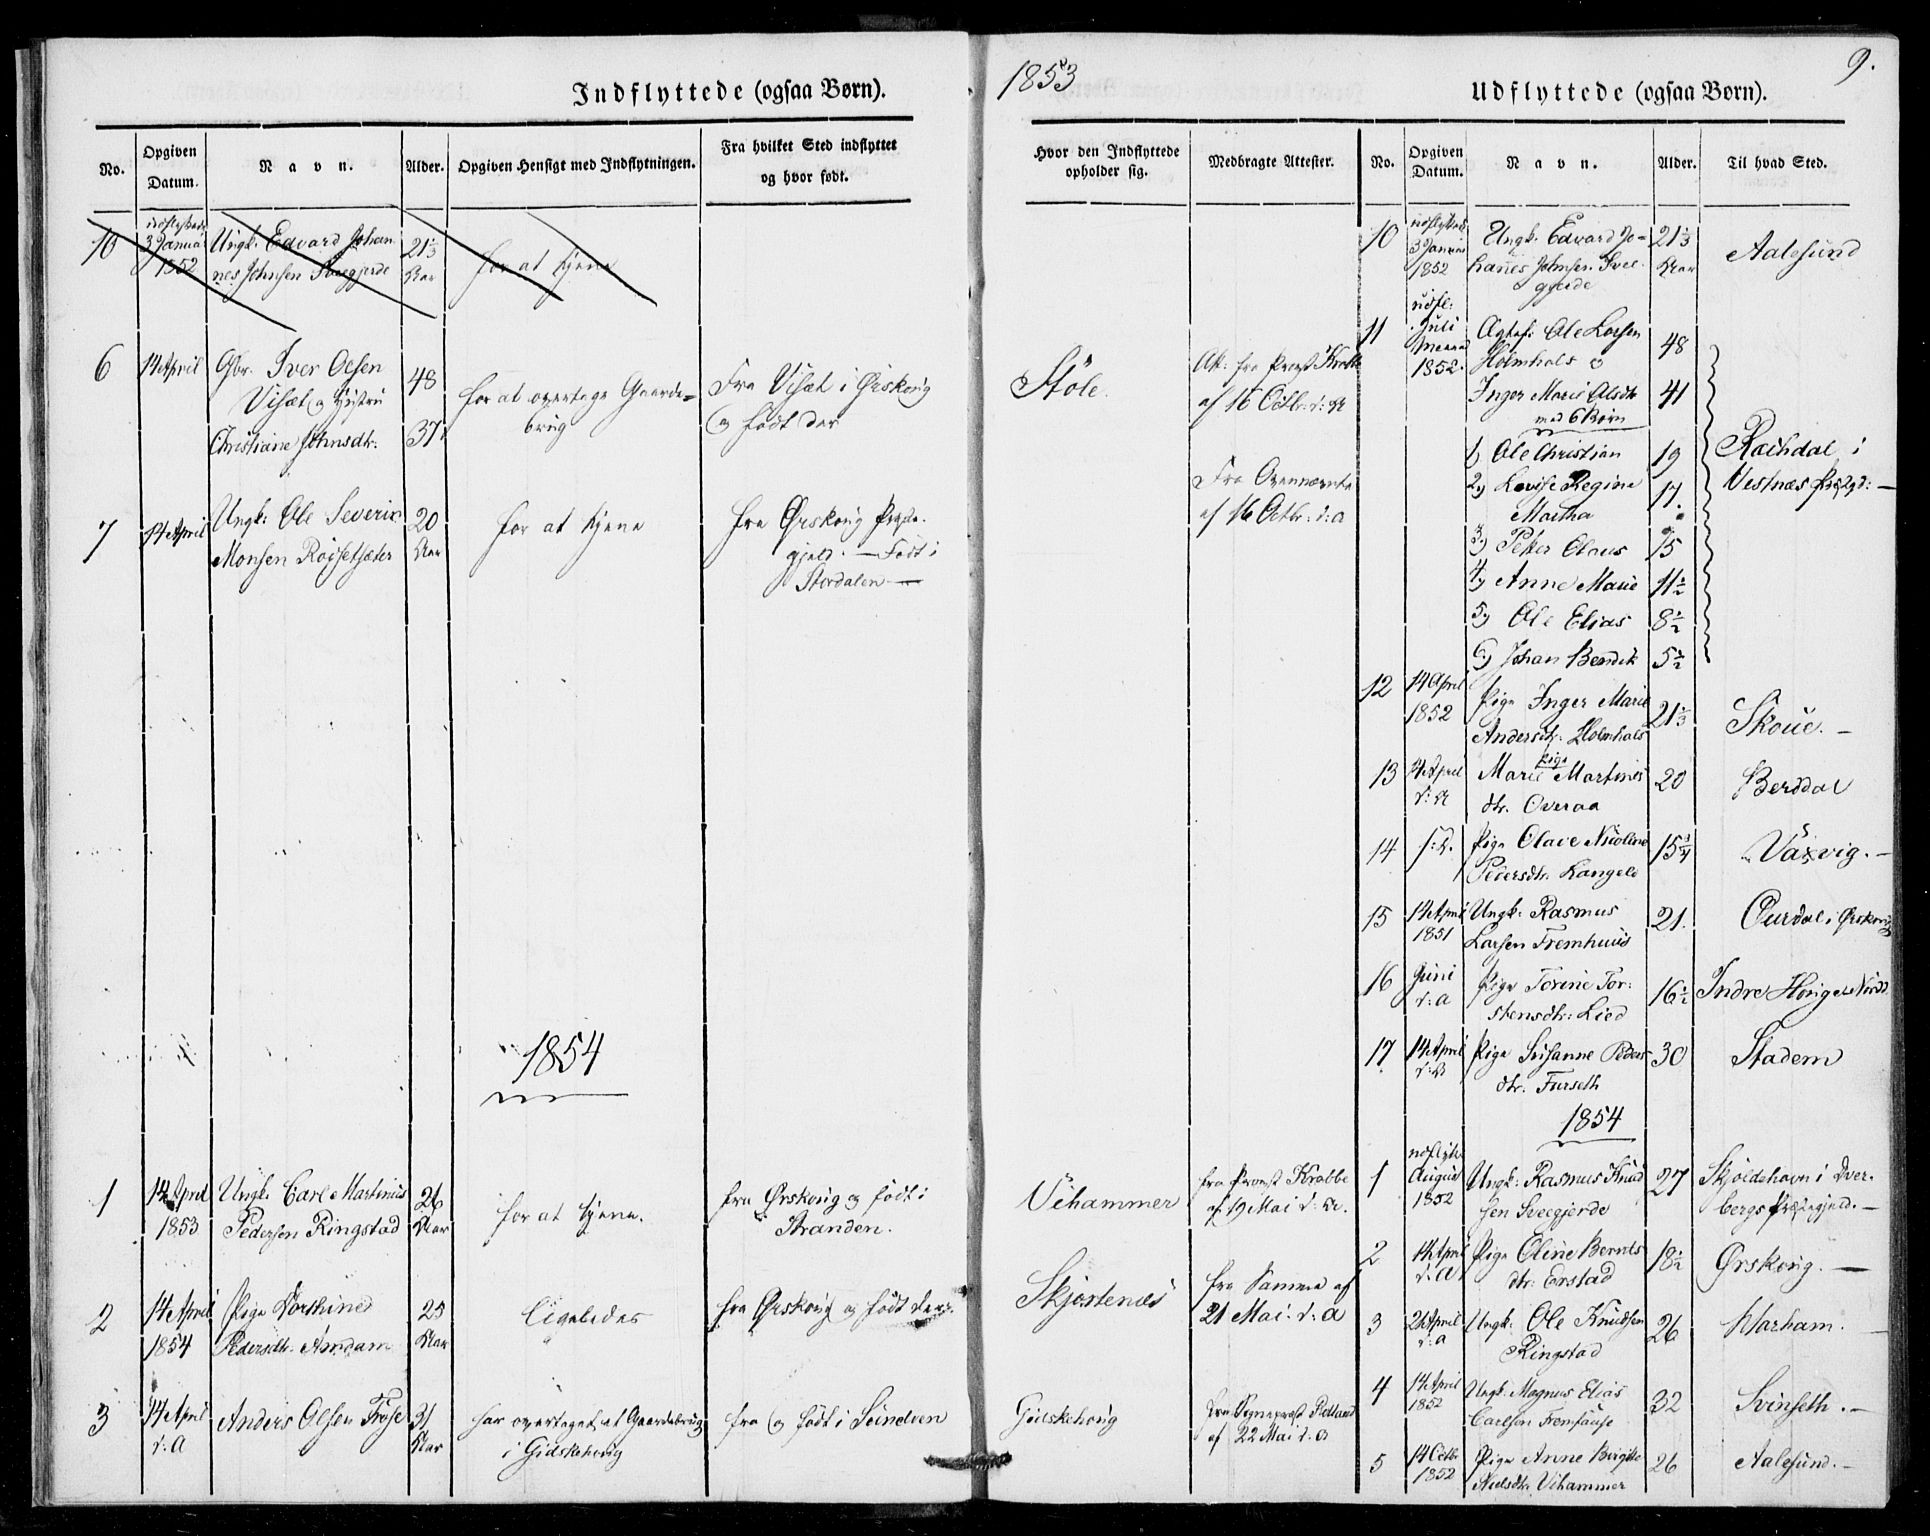 Indflyttede (ogsaa Børn).
No.
Opgiven
Datum.
Navn.
Alder.
Opgiven Hensigt med Indflytningen.
Fra hvilket Sted indflyttet
og hvor født.
10
3 Januar
1852
Ungk. Edvard Johan
nes Johnsen Sveegjerde
21⅓
Aar
for at tjene
6
14 April
Gbr. Iver Olsen
Visæt og Hustru
Christiane Johnsdtr.
48
37
for at overtage Gaards-
brug
Fra Visæt i Ørskoug
og født der
7
14 April
Ungk: Ole Severin
Monsen Røijsetsæter
20
Aar
for at tjene
fra Ørskoug Præste-
gjeld. — Født i
Stordalen —
1854
1
14 April
1853
Ungk. Carl Martinus
Pedersen Ringstad
26
Aar
for at tjene.
fra Ørskoug og født i
Stranden.
2
14 April
1854
Pige
Pedersdtr. Amdam
25
Aar
ligeledes
fra Ørskoug og født der.
3
14 April
d: A
Anders Olsen Frøse
31
Aar
har overtaget et Gaardsbrug
i Gidskehoug
fra og født i Sundven
1853
9.
Udflyttede (ogsaa Børn).
Hvor den Indflyttede
opholder sig.
Medbragte Attester.
No.
Opgiven
Datum.
Navn.
Alder.
Til hvad Sted.
Støle.
Att: fra Provst Krabbe
af 16 Octbr. d: A
Fra Ovennævnte
af 16 Octbr: d: a
10
udflyttede
3 Januar
1852
Ungk. Edvard Jo-
hannes Johnsen Svee-
gjerde
21⅓
Aar
Aalesund
11
udfl:
Juli
Maaned
1852.
Ægtef: Ole Larsen
Holmhals o
Inger Marie Olsdtr
med 6 Børn
48
41
1) Ole Christian
19
2) Lovise Regine
Martha
17.
3) Petter Olaus
15
4) Anne Marie
11½
5) Ole Elias
8½
6) Johan Bendik
5½
Rachdal i
Vestnæs Præstgd: —
12
14 April
1852
Pige Inger Marie
Andersdtr. Holmhals
21⅓
Skoue. —
13
14 April
d: A
Pige
Marie Martines
dtr. Overaa
20
Berddal
14
d: A.
Pige Olave Nicoline
Pedersdtr. Langelo
15¾
Vaxvig. —
15
14 April
1851
Ungk: Rasmus
Larsen Fremhuus
21.
Ourdal i Ørskoug
16
Juni
d: a
Pige Torine Tor-
stensdtr: Lied
16½
Indre
17
14 April
d: A
Pige Susanne Peders
dtr: Furseth
30
Stadem
1854
1
udflytt.
August
1852
Ungk: Rasmus Knud
sen Sveegjerde
27
Skjoldehavn i Over-
bergs Præstegjeld. —
Vihammer
fra Provst Krabbe
af 19 Mai d: A.
2
14 April
d: A
Pige Oline Bernts
dtr: Erstad
18½
Ørskoug. —
Skjortenæs
fra Samme af
21 Mai d: A
3
24 April
d: a
Ungk: Ole Knudsen
Ringstad
26
Harham. —
4
14 April
1852
Ungk. Magnus Elias
Carlsen Fremhause
32
Svinseth. —
Gidskehoug
fra Sogneprest
af 22 Mai d: a
5
14 Octbr
1852
Pige Anne Birgitte
Nielsdtr Vihammer
26
Aalesund. —